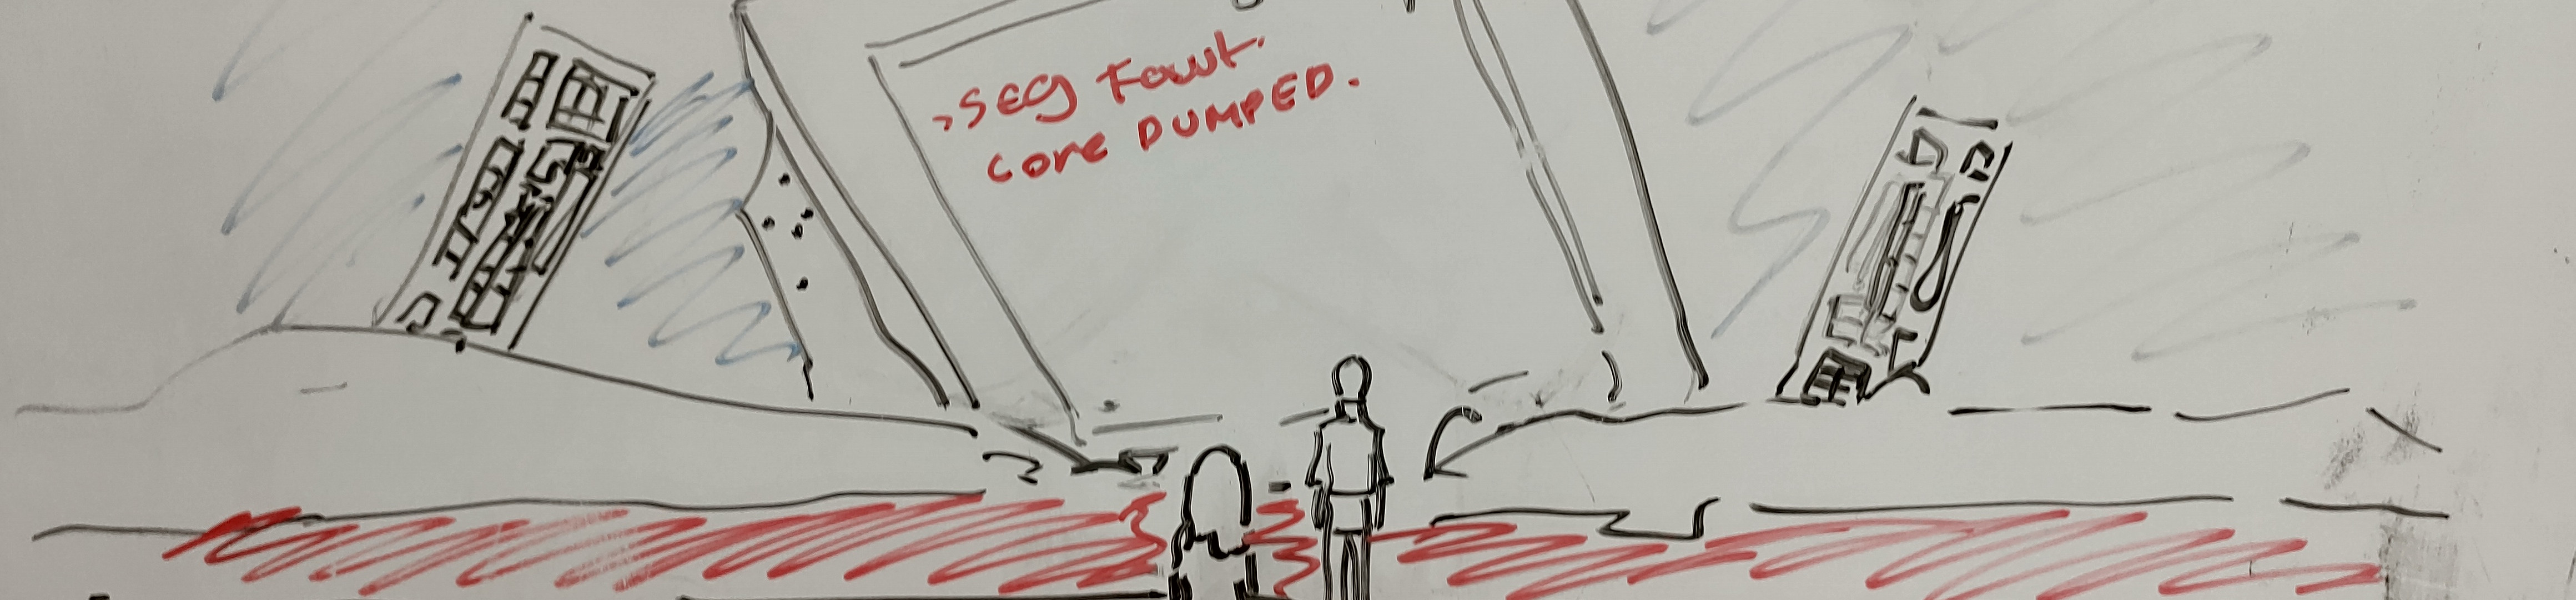 >SEG Fault.
core DUMPED.